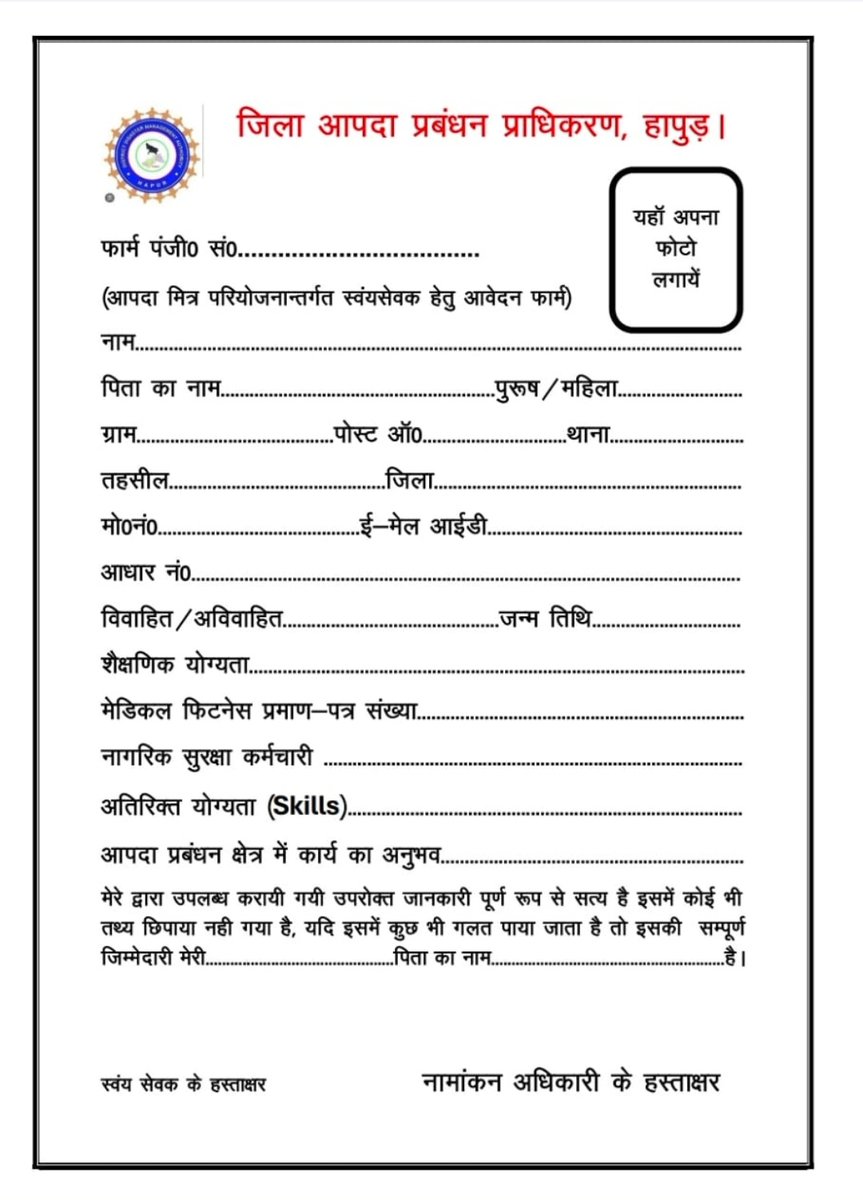 जिला आपदा प्रबंधन प्राधिकरण, हापुड़।
DISTRICT DISASTER MANAGEMENT AUTHORITY
HAPUR
यहॉ अपना
फोटो
लगायें
फार्म पंजी0 सं0....................................
(आपदा मित्र परियोजनान्तर्गत स्वंयसेवक हेतु आवेदन फार्म)
नाम....................................................................................................
पिता का नाम.............................................पुरूष/महिला....................
ग्राम.................................पोस्ट ऑ0........................थाना......................
तहसील....................................जिला...................................................
मो0नं0..................................ई–मेल आईडी..........................................
आधार नं0...........................................................................................
विवाहित/अविवाहित....................................जन्म तिथि.........................
शैक्षणिक योग्यता..................................................................................
मेडिकल फिटनेस प्रमाण–पत्र संख्या......................................................
नागरिक सुरक्षा कर्मचारी .....................................................................
अतिरिक्त योग्यता (Skills).................................................................
आपदा प्रबंधन क्षेत्र में कार्य का अनुभव..................................................
मेरे द्वारा उपलब्ध करायी गयी उपरोक्त जानकारी पूर्ण रूप से सत्य है इसमें कोई भी
तथ्य छिपाया नही गया है, यदि इसमें कुछ भी गलत पाया जाता है तो इसकी सम्पूर्ण
जिम्मेदारी मेरी.....................................पिता का नाम..............................................है।
स्वंय सेवक के हस्ताक्षर नामांकन अधिकारी के हस्ताक्षर